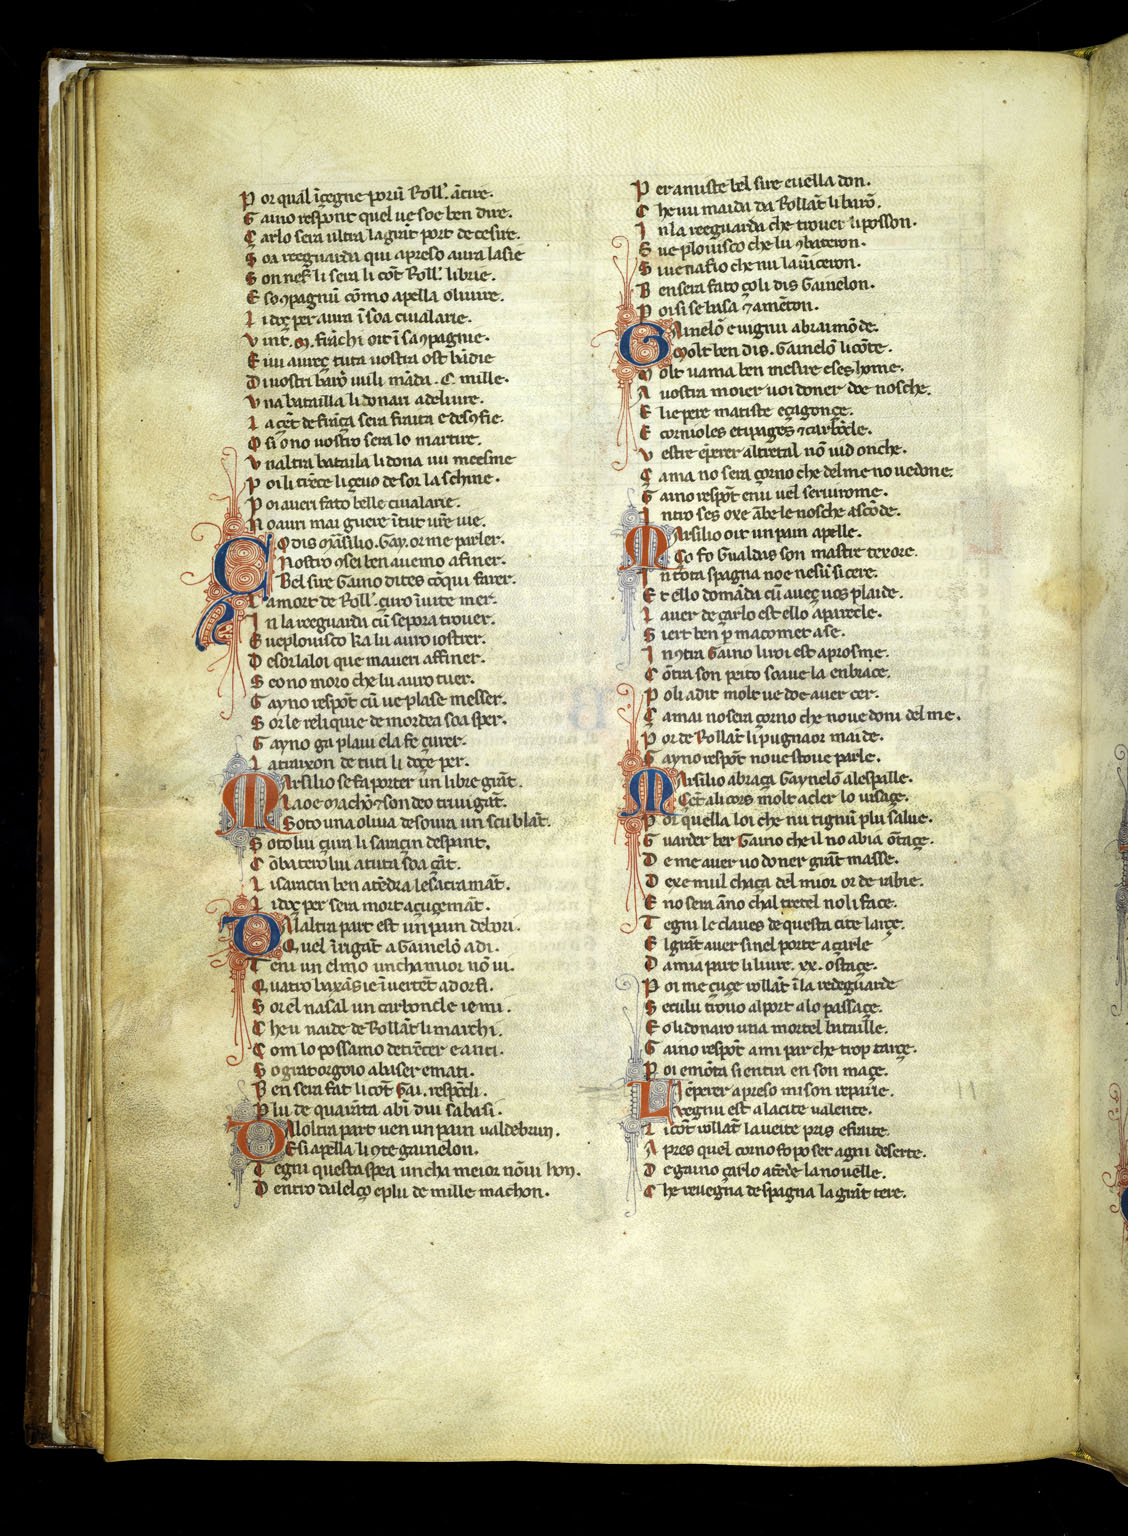 P or qual īçegne porū Roll'. ācire.
G aino respont quel ue soe ben dire.
C arlo sera ultra la grāt port de cesire.
S oa reeguarda qui apreso aura lasie
S on neẜ li sera li cōt Roll'. li brie.
E so ꝯpagnū cōmo apella oliuire.
L i doç per aura ī soa ciualarie.
V int. M. frāchi oit ī sa ꝯpagnie.
E uu aureç tuta uostra ost bādie
D i uostri barō uuli māda. C. mille.
V na batailla li donari a deliure.
L a çēt de frāça sera fraita e desꝯfie.
O si ono uostro sera lo martire.
V naltra bataila li dona uu meesme
P oi li trēce li çeuo de sor la schine.
P oi aueri fato belle ciualarie.
N o auri mai guere ī tut ur̄e uie.
C O dis M̄arsilio. Gay. or me parler.
Nostro ꝯsei ben auemo afiner.
Bel sire Gaino dites cōqui farer.
L amort de Roll'. çuro ī uite mer.
I n la reeguarda cū sepora trouer.
E ueplouisco ka lu auro iostrer.
D esor la loi que maueri affiner.
S e o no moro che lu auro tuer.
G ayno respōt cū ue plase messer.
S or le reliquie de mordea soa sper.
G ayno ga plaui ela fe çurer.
L a traixon de tuti li doçe per.
M Arsilio se fa porter un libre grāt.
La o e Machō ⁊ son deo triuigāt.
Soto una oliua desoura un scu blāt.
S oto lui çura li saraçin despant.
C ōbatero lui a tuta soa çāt.
L i saracin ben atēdra le sacramāt.
L i doç per sera mort a çuçemāt.
D Alaltra part est un pain delori.
Quel ī rigāt a Gainelō a di.
T eni un elmo un cha miior nō ui.
Q uatro baxās ie ī uertēt ad or fi.
S or el nasal un carboncle ie mi.
C he u naide de Rollāt li marchi.
C om lo possamo detrēcer e anci.
S o grāt orgoio abaser e mati.
B en sera fat li cōt Gai. respōdi.
P lu de quarāta abi dui sa basi.
D Aloltra part uen un pain ualdebrun.
E si apella li ꝯte gainelon.
T egni questa spea un cha meior nō ui hon.
D entro dal elço e plu de mille machon.
P er amiste bel sire e uella don.
C he uu maida da Rollāt li barō.
I n la reeguarda che trouer li posson.
E ue plouisco che lu ꝯbateron.
S i ue na fio che nu la uiceron.
B en sera fato ço li dis Gainelon.
P oi si se basa ⁊ amēton.
G Ainelō e uignu abraimō de.
Molt ben dis. Gainelō li cōte.
M olt uama ben mesire e ses home.
A uostra moier uoi doner doe nosche.
E lie pere matiste e çagonçe.
E cornioles etipages ⁊ carbōcle.
V estre ēperer altretal nō uid onche.
C ama no sera çorno che del me no ue done.
G aino respōt e nu uel seriuirome.
I ntro ses oxe ābe le nosche ascōde.
M Arsilio oit un pain apelle.
Ço fo Gualdas son mastre texore.
I n tota spagna no e nesū sicere.
E t ello domāda cū aueç uos plaide.
L auer de çarlo est ello aparecle.
S iert ben ꝑ macomet a se.
I nꝯtra Gaino li roi est aprosme.
C ōtra son peito soaue la enbrace.
P oli a dit molt ue doe auer cer.
C amai no sera çorno che no ue doni del me.
P or de Rollāt li pugnaor maide.
G ayno respōt no ue stoue parle.
M Arsilio abraça Gaynelō alespalle.
Cōt ali cors molt a cler lo uisage.
P or quella loi che nu tignū plu salue.
G uarder ber Gaino che il no abia ōtage.
D e me auer uo doner grāt masse.
D exe mul chaça del mior or de rabie.
E no sera āno chal tretel no li face.
T egni le claues de questa cite large.
E l grāt auer sinel porte a çarle
D a mia part li liure. xx. ostage.
P oi me çuçe rollāt ī la redeguarde
S eculu trouo al port a lo passaçe.
E o li donaro una mortel bataille.
G aino respōt a mi par che trop targe.
P oi emōta si entra en son maçe.
L I ēperer apreso mi son repaire.
Vegnu est a la cite ualente.
L i cōt rollāt la ueite pris e fraite.
A pres quel corno fo poset agni deserte.
D e gaino çarlo atēde la nouelle.
C he reuegna de spagna la grāt tere.